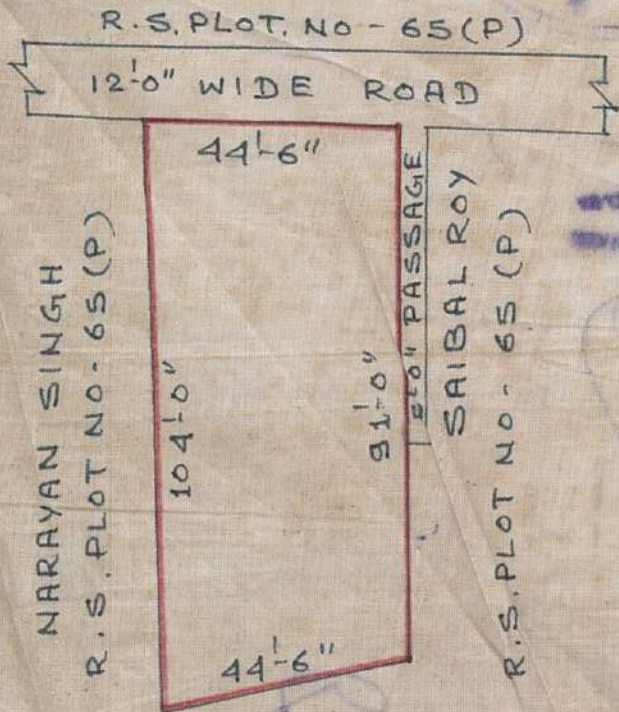 R.S. PLOT. NO - 65(P)
12'-0" WIDE ROAD
44'-6"
NARAYAN SINGH
R.S. PLOT NO- 65 (P)
104'-0"
91'-0"
PASSAGE
SAIBAL ROY
R.S. PLOT NO- 65 (P)
44'-6"